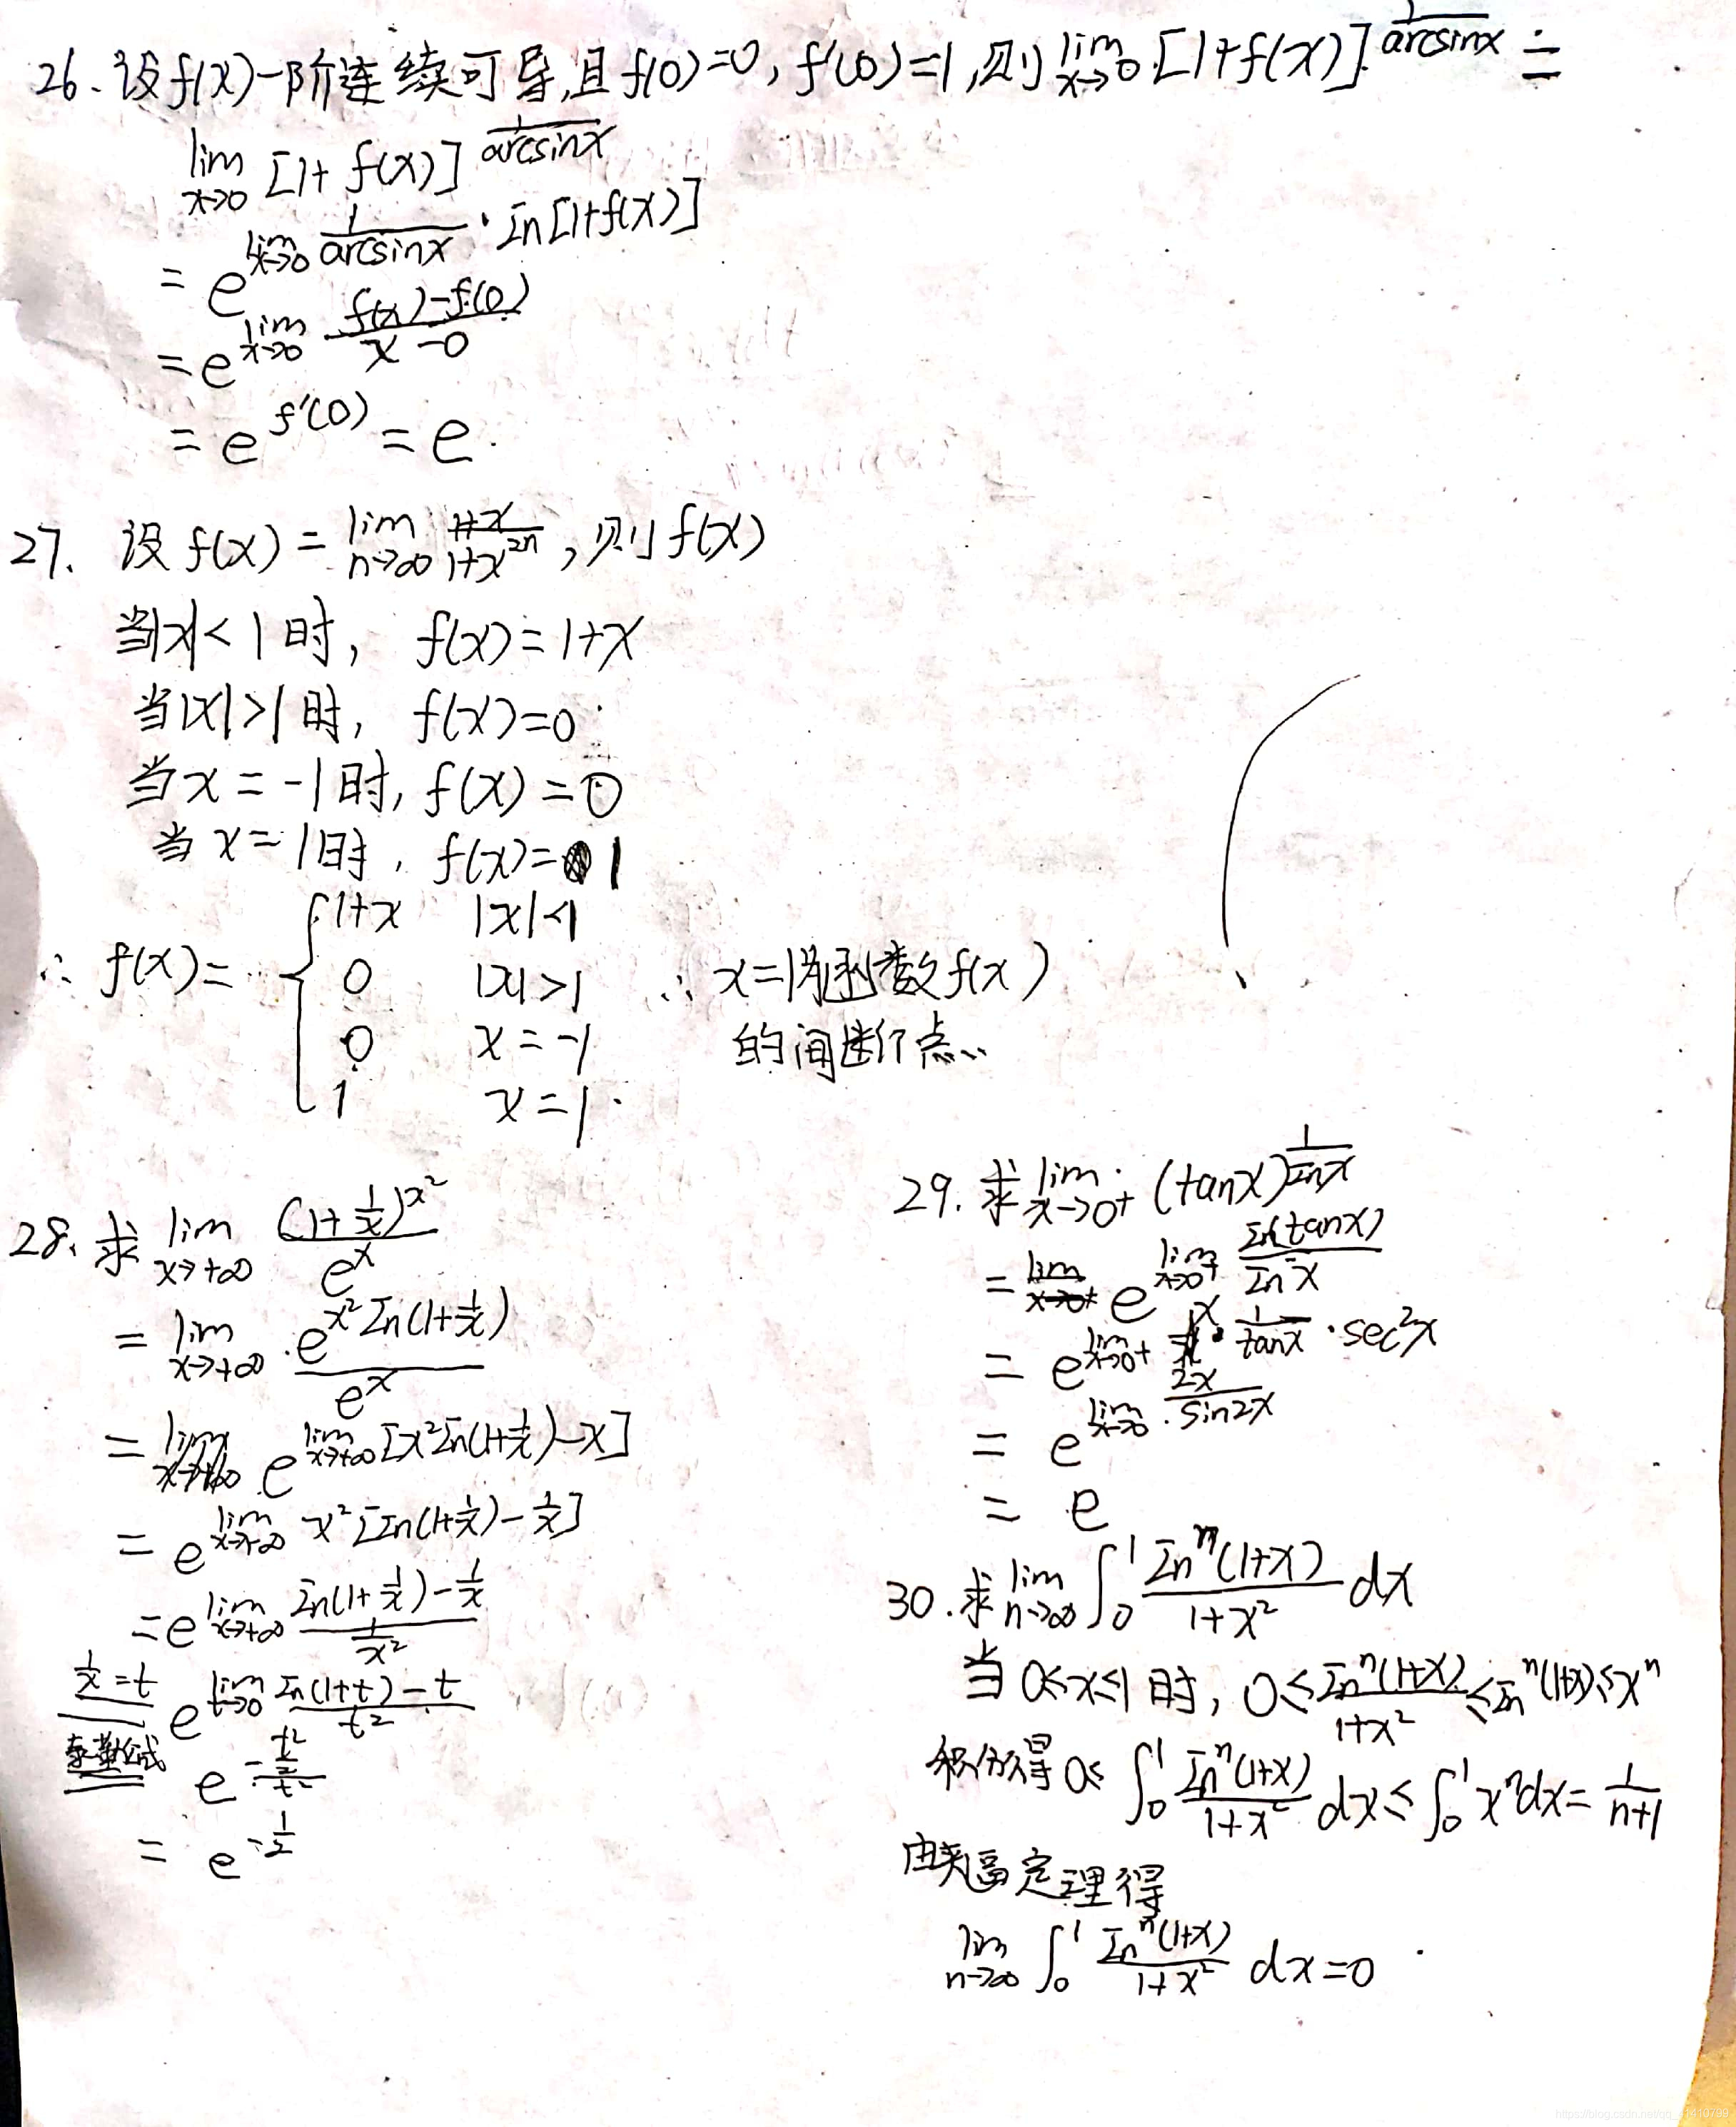 26. 设f(x)一阶连续可导,且f(0)=0, f'(0)=1,则 lim x→0 [1+f(x)]^(1/arcsinx) =
lim x→0 [1+f(x)]^(1/arcsinx)
= e^(lim x→0 1/arcsinx · ln[1+f(x)])
= e^(lim x→0 (f(x)-f(0))/(x-0))
= e^(f'(0)) = e.
27. 设f(x) = lim n→∞ (1+x)/(1+x^(2n)), 则f(x)
当|x|<1时, f(x)=1+x
当|x|>1时, f(x)=0
当x=-1时, f(x)=0
当x=1时, f(x)=1
∴ f(x)= { 1+x |x|<1
0 |x|>1
0 x=-1
1 x=1.
∴ x=1为函数f(x)
的间断点.
28. 求 lim x→+∞ (1+1/x)^(x²) / e^x
= lim x→+∞ e^(x² ln(1+1/x)) / e^x
= e^(lim x→+∞ [x² ln(1+1/x)-x])
= e^(lim x→+∞ x²[ln(1+1/x)-1/x])
= e^(lim x→+∞ (ln(1+1/x)-1/x)/(1/x²))
1/x=t e^(lim t→0 (ln(1+t)-t)/t²)
泰勒公式 e^(-(t²/2)/t²)
= e^(-1/2)
29. 求 lim x→0+ (tanx)^(1/lnx)
= e^(lim x→0+ ln(tanx)/lnx)
= e^(lim x→0+ x · 1/tanx · sec²x)
= e^(lim x→0 2x/sin2x)
= e
30. 求 lim n→∞ ∫₀¹ lnⁿ(1+x)/(1+x²) dx
当0≤x≤1时, 0≤ lnⁿ(1+x)/(1+x²) ≤ lnⁿ(1+x) ≤ xⁿ
积分得 0≤ ∫₀¹ lnⁿ(1+x)/(1+x²) dx ≤ ∫₀¹ xⁿdx = 1/(n+1)
由夹逼定理得
lim n→∞ ∫₀¹ lnⁿ(1+x)/(1+x²) dx=0